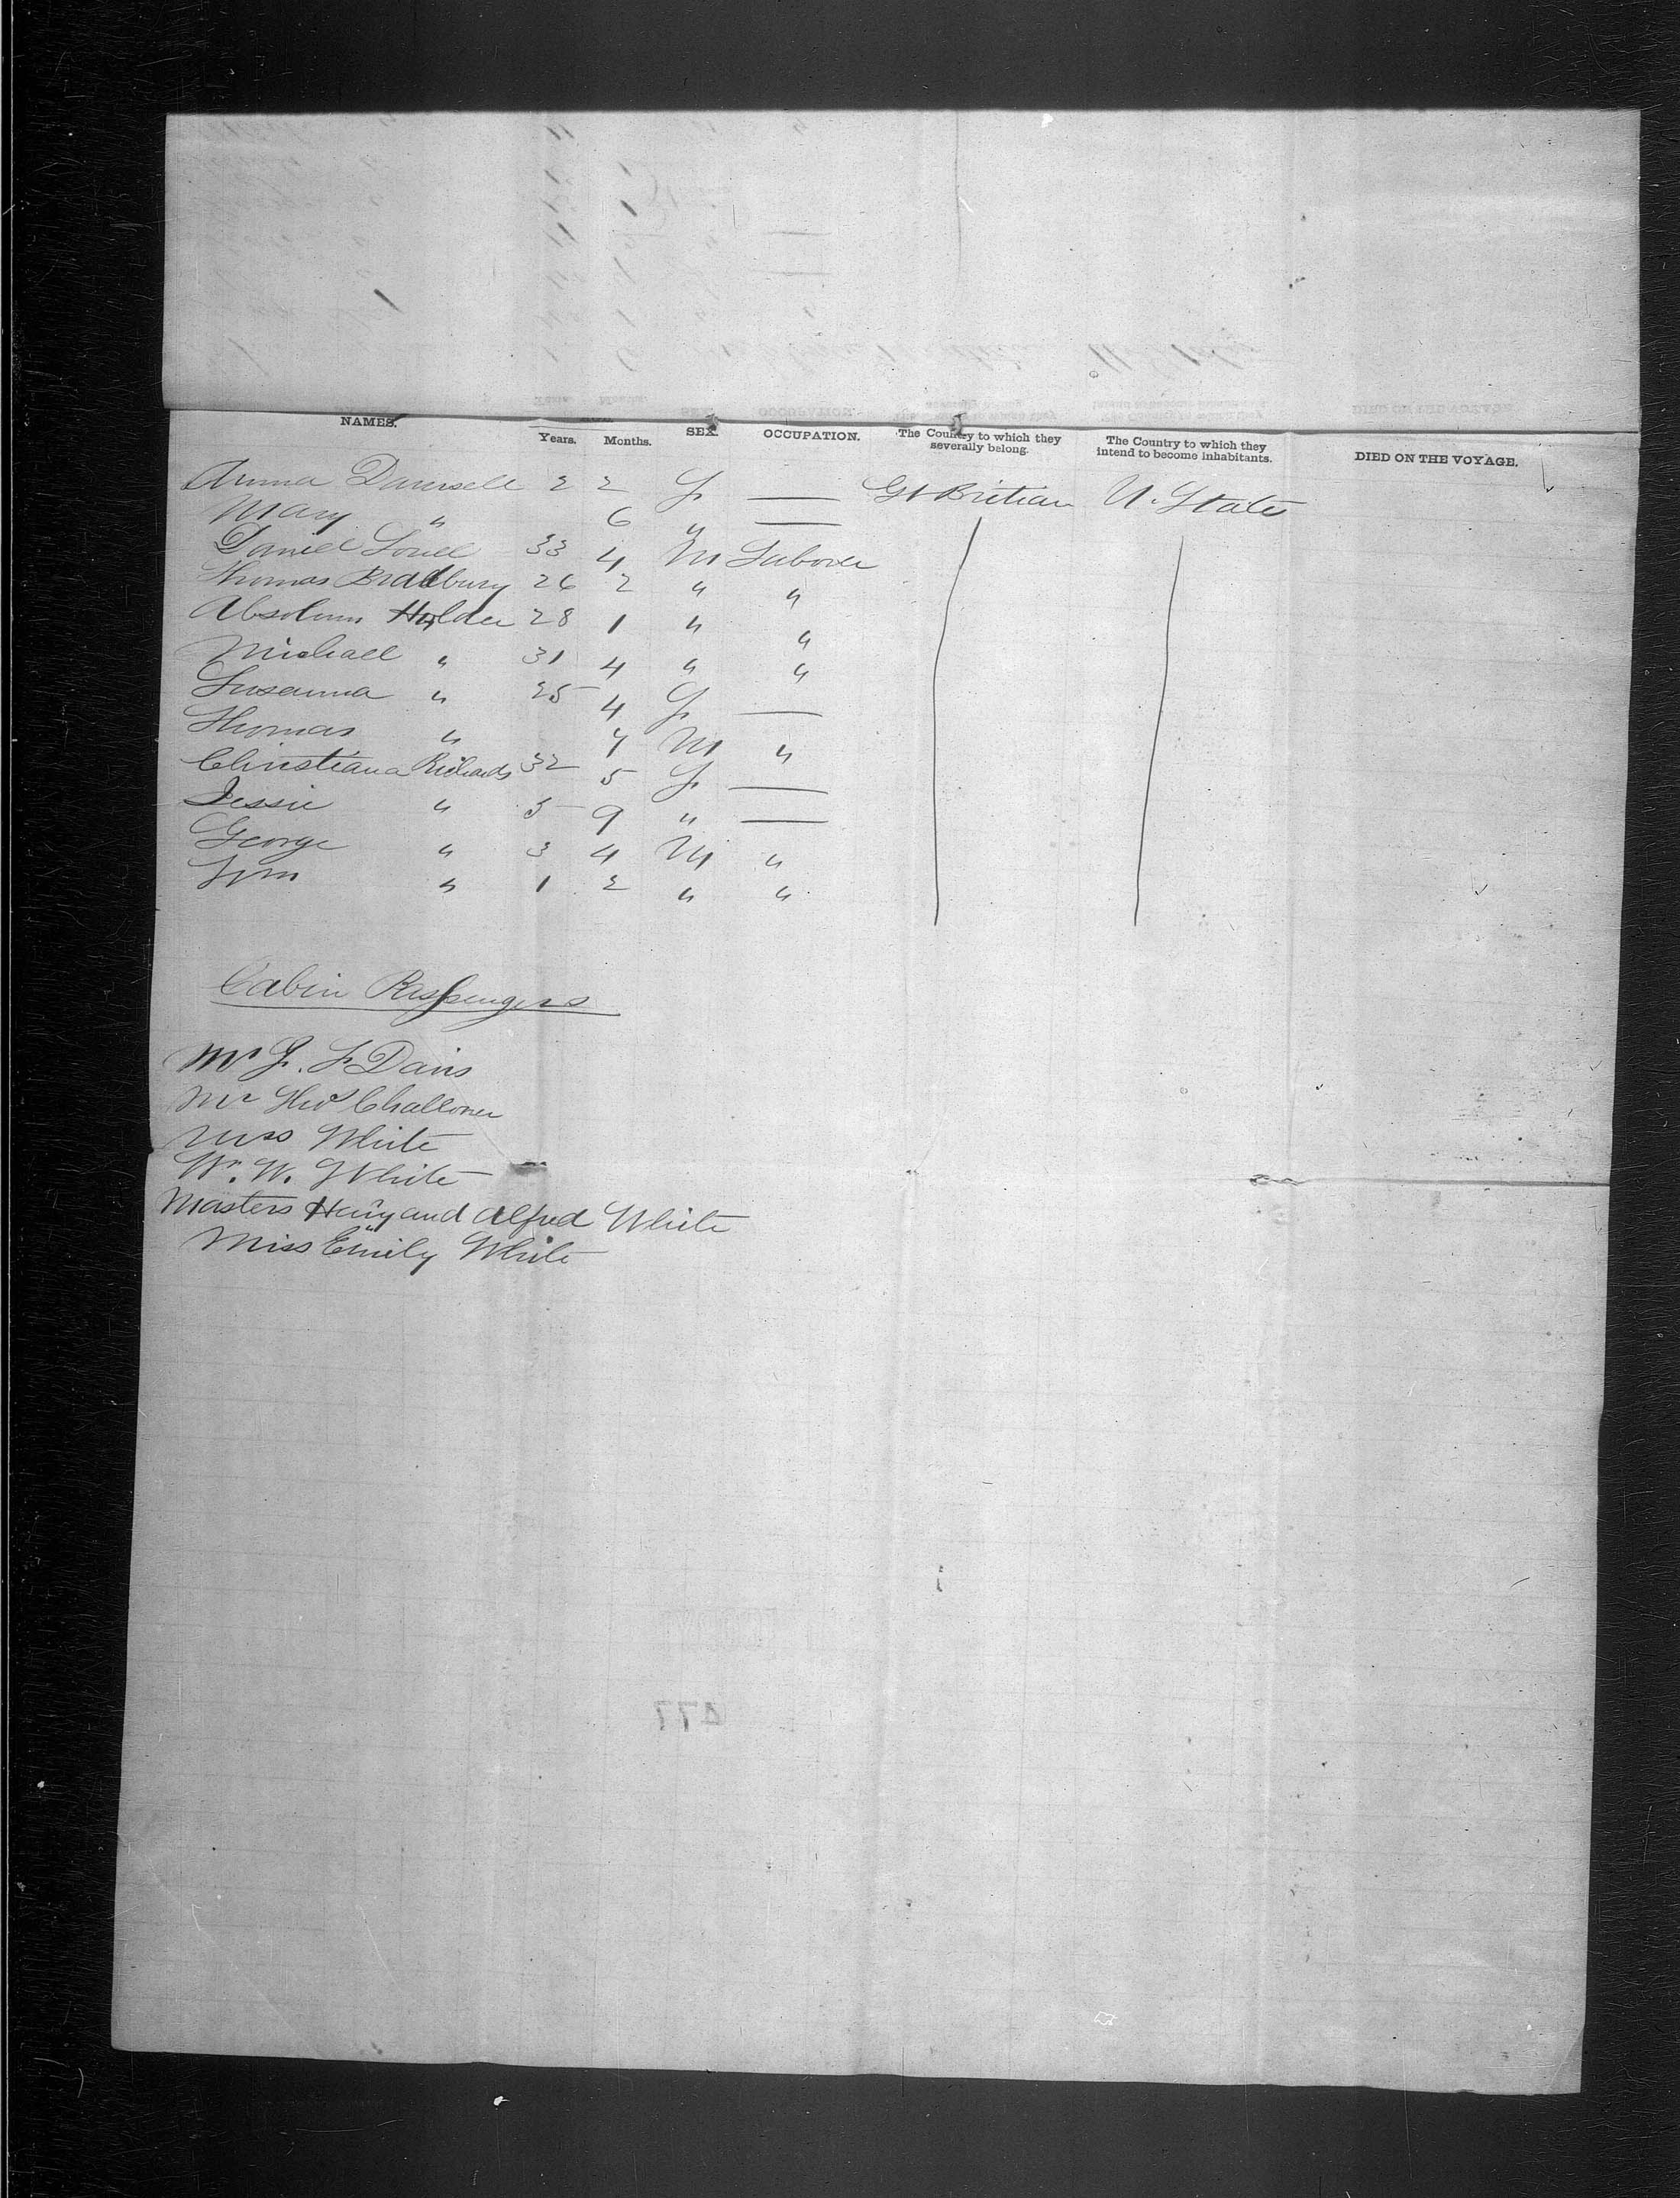 NAMES. Years. Months. SEX. OCCUPATION. The Country to which they severally belong. The Country to which they intend to become inhabitants. DIED ON THE VOYAGE.
Anna Damsell 2 2 F — Gt Britian U. States
Mary " 6 " —
Daniel 33 4 M Laborer
Thomas Bradbury 26 2 " "
Absolum Holder 28 1 " "
Michael " 31 4 " "
Susanna " 25 4 F —
Thomas " 7 M "
Christiana Richards 32 5 F —
Jessie " 5 9 " —
George " 3 4 M "
Wm " 1 2 " "
Cabin Passengers
Mr J. F Davis
Mr Thos Challoner
Mrss White
W. White
Masters Harry and Alfred White
Miss Emily White